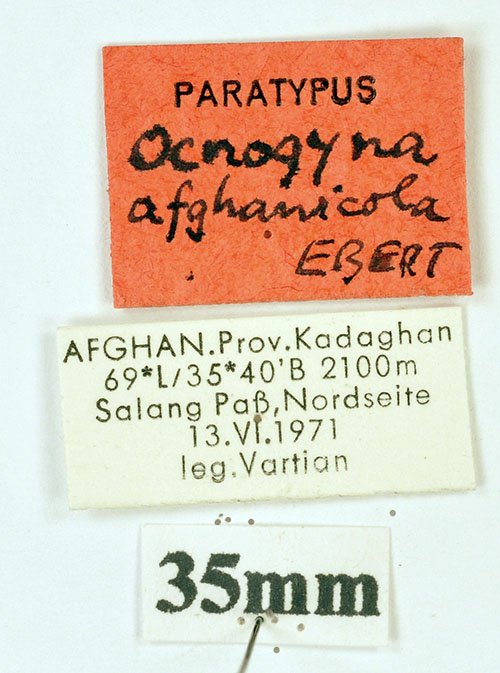 PARATYPUS
Ocnogyna
afghanicola
EBERT
AFGHAN.Prov.Kadaghan
69*L/35*40'B 2100m
Salang Paß,Nordseite
13.VI.1971
leg.Vartian
35mm